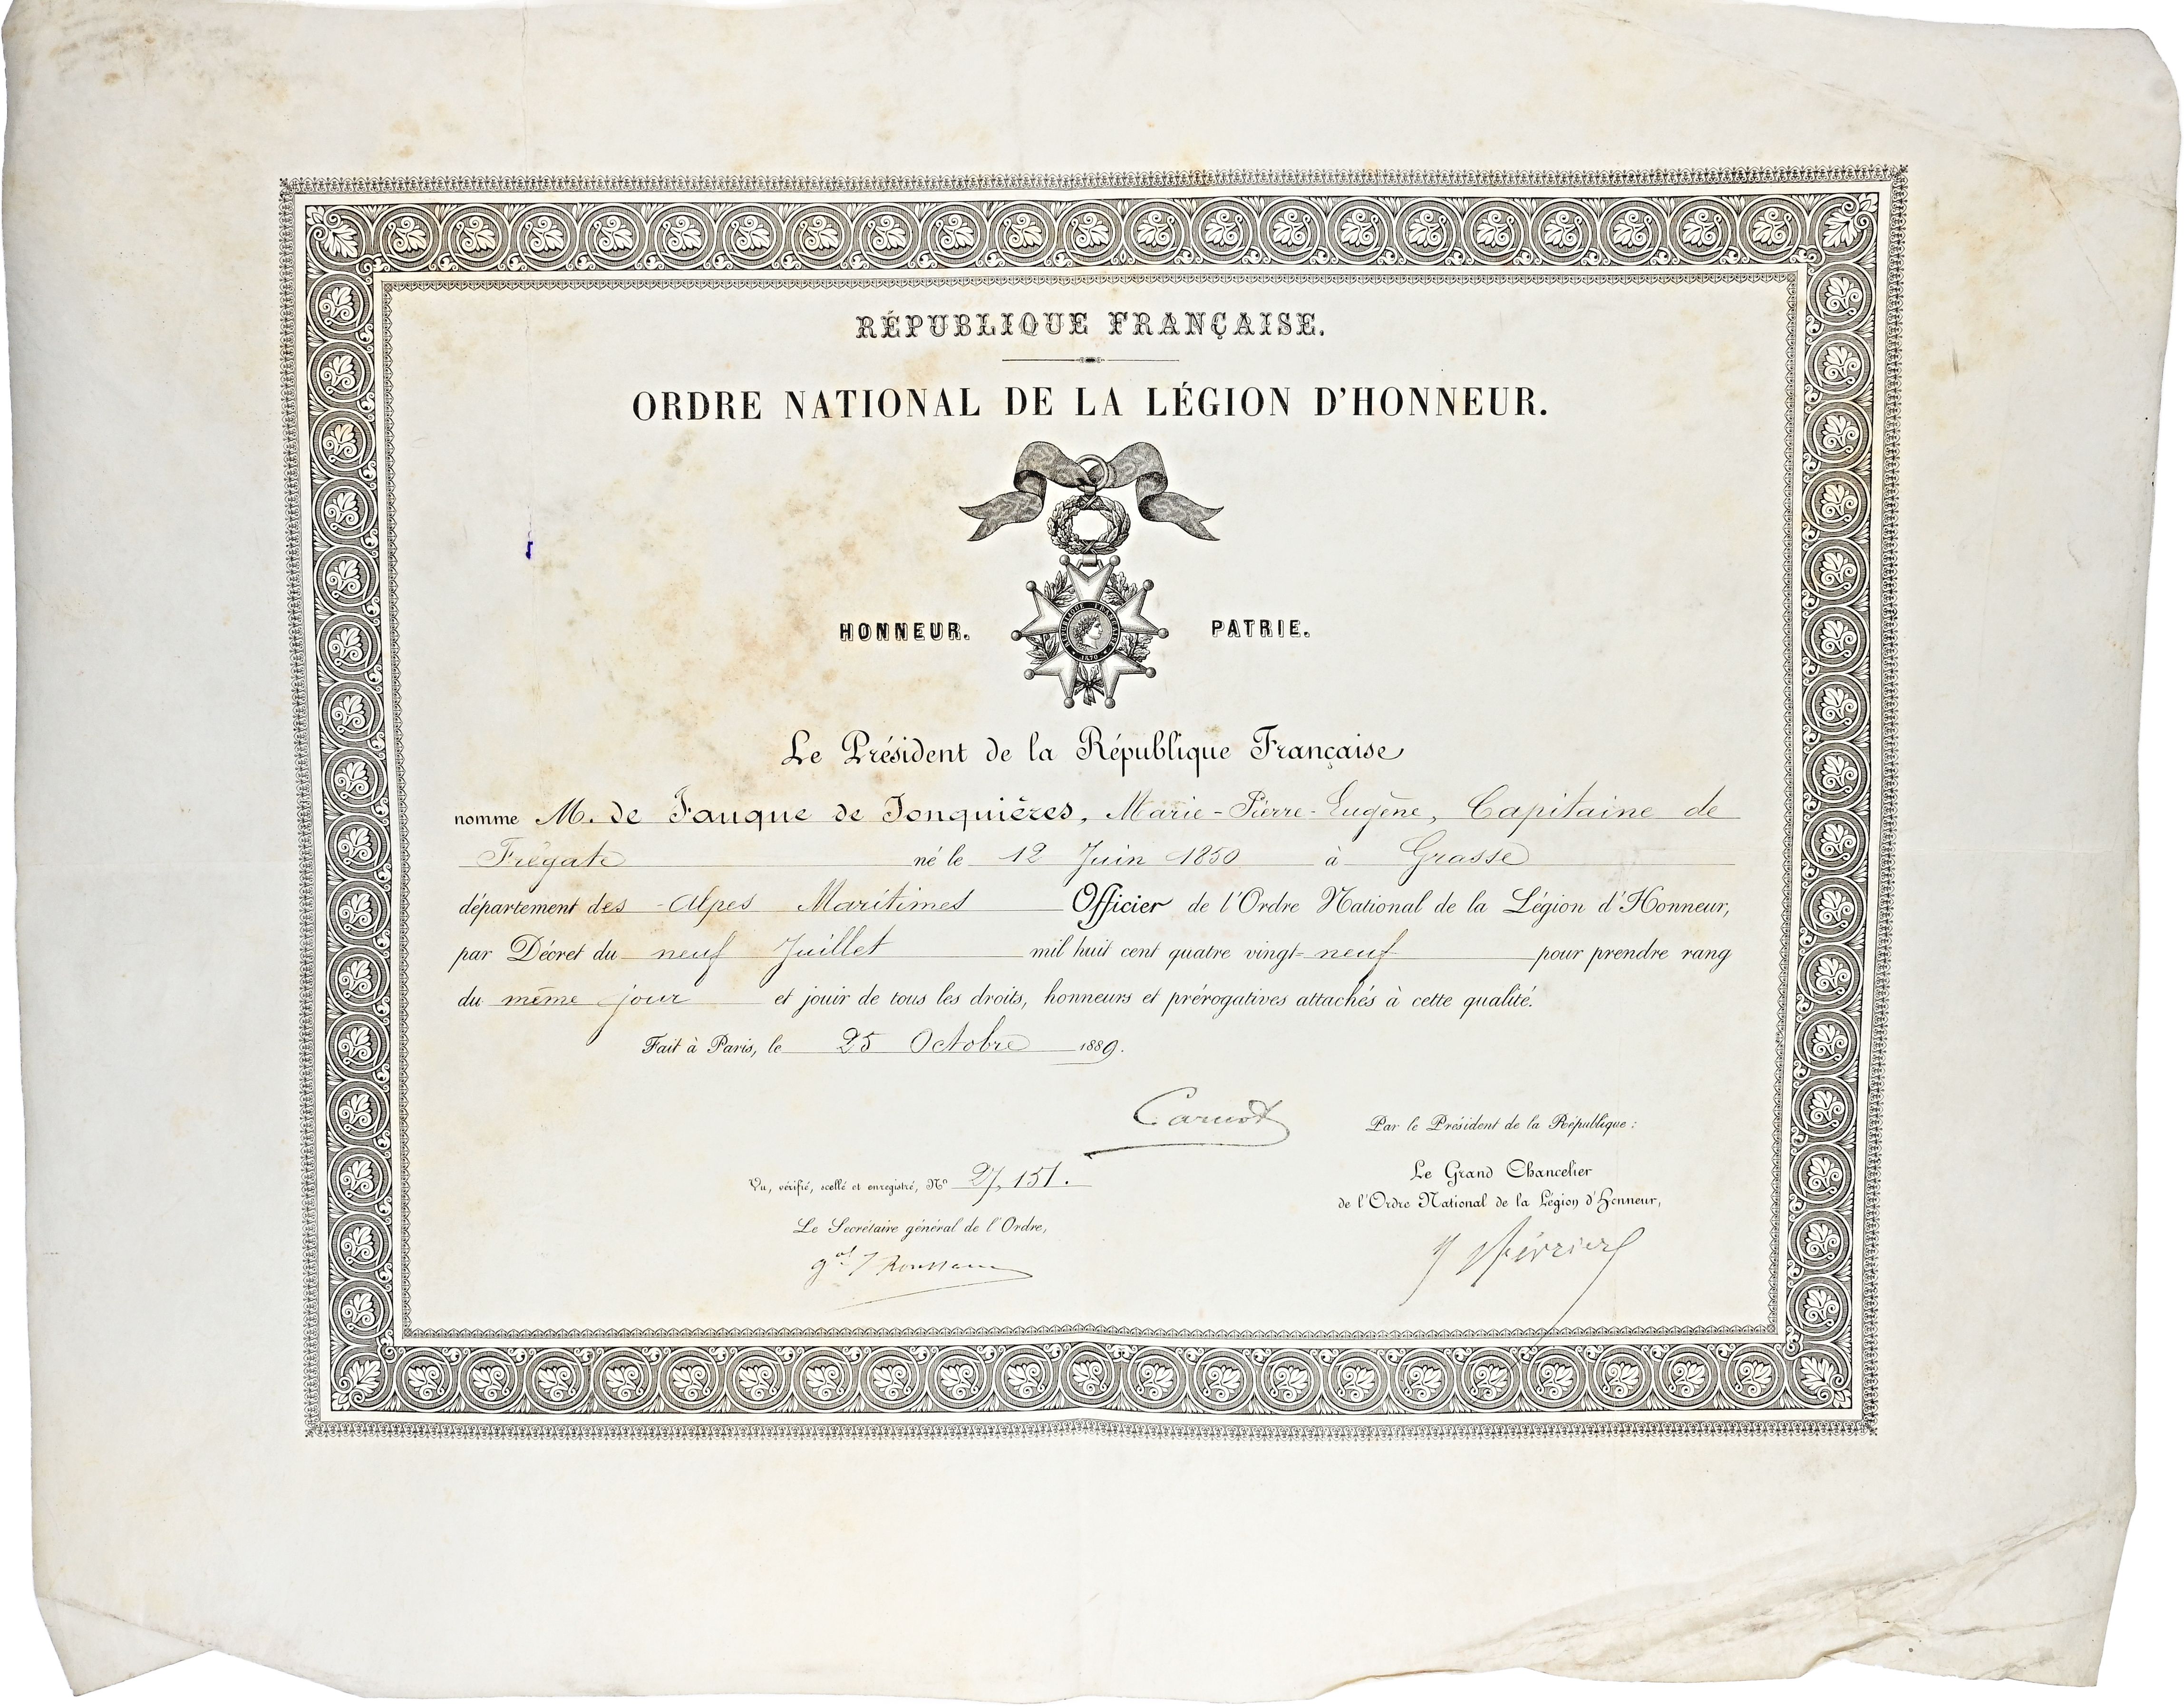 RÉPUBLIQUE FRANÇAISE.
ORDRE NATIONAL DE LA LÉGION D'HONNEUR.
HONNEUR. PATRIE.
RÉPUBLIQUE FRANÇAISE 1870
Le Président de la République Française
nomme M. de Fauque de Jonquières, Marie-Pierre-Eugène, Capitaine de
Frégate né le 12 Juin 1850 à Grasse
département des Alpes Maritimes Officier de l'Ordre National de la Légion d'Honneur,
par Décret du neuf Juillet mil huit cent quatre vingt-neuf pour prendre rang
du même jour et jouir de tous les droits, honneurs et prérogatives attachés à cette qualité.
Fait à Paris, le 25 Octobre 1889.
Carnot
Par le Président de la République :
Vu, vérifié, scellé et enregistré, No 27,151.
Le Grand Chancelier
de l'Ordre National de la Légion d'Honneur,
Le Secrétaire général de l'Ordre,
gal Rousseau